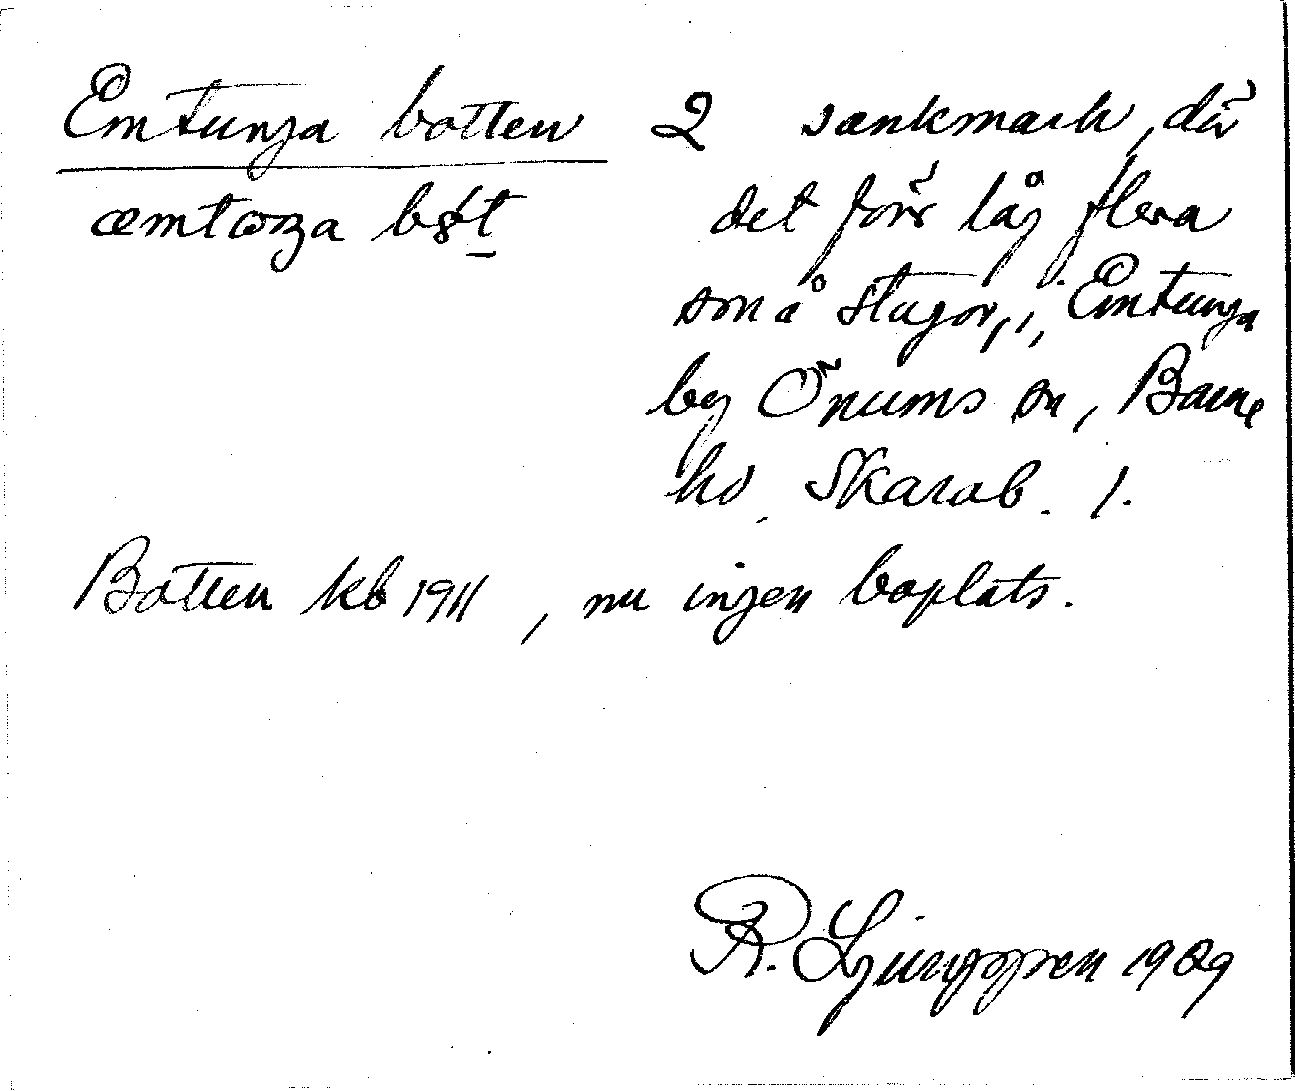 Emtunga botten 2 sankmark, där
det förr låg flera
små stugor, i, Emtunga
by Önums sn, Barne
hd. Skarab. l.
Botten kb 1911, nu ingen boplats.
R. Ljunggren 1929